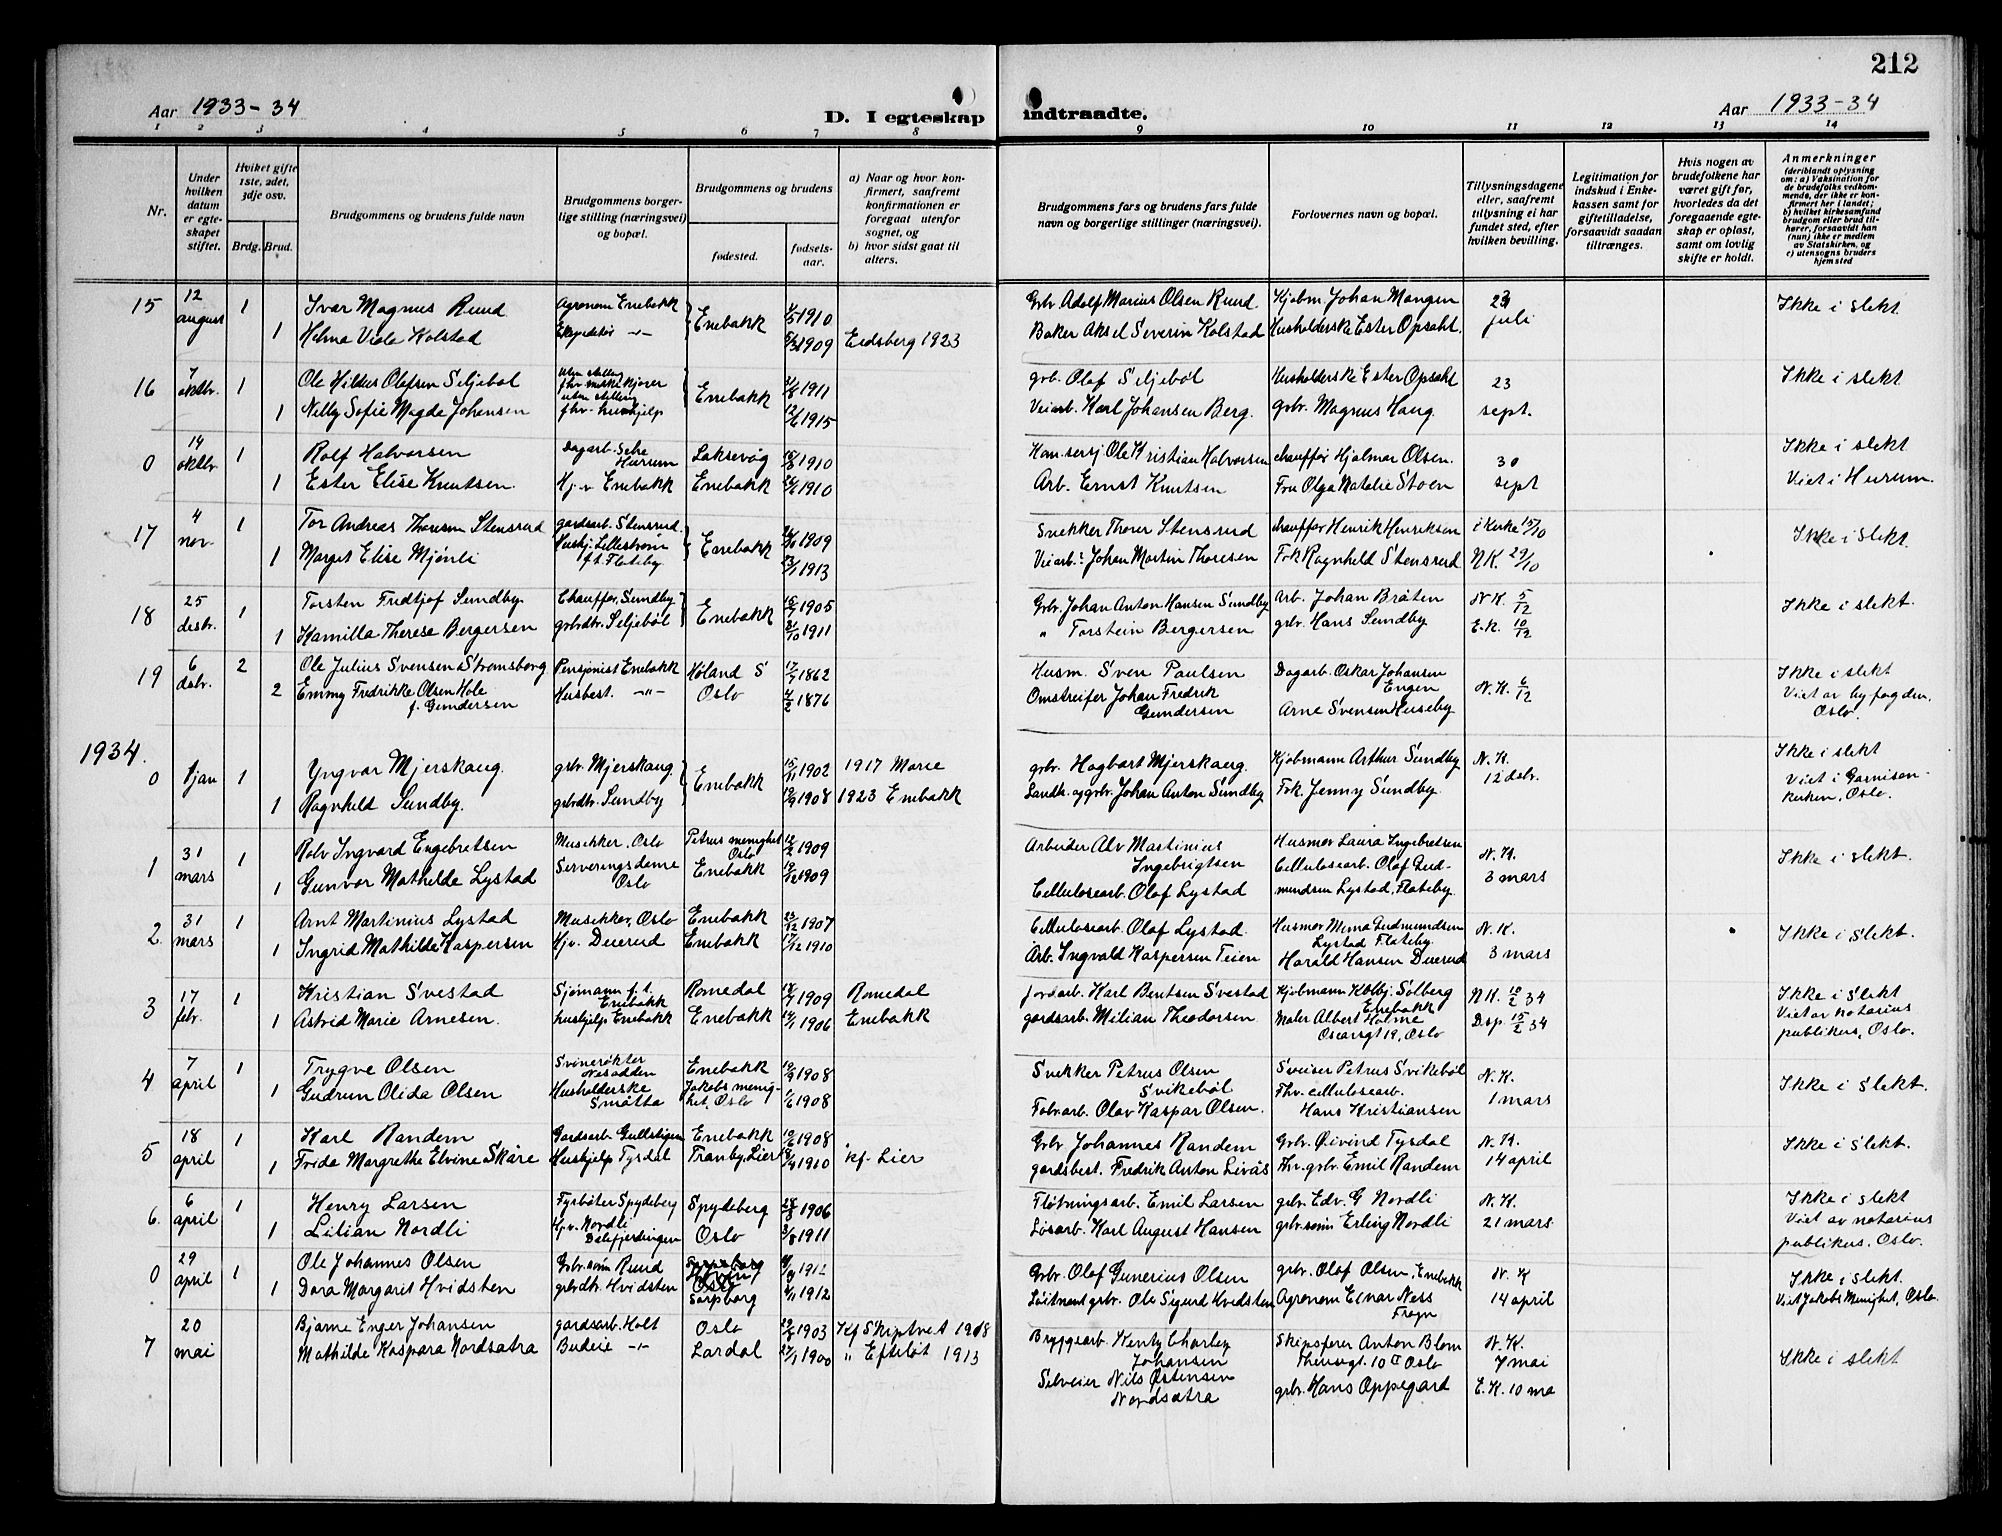 212
Aar 1933-34
D. I egteskap indtraadte.
Aar 1933-34
1 2 3 4 5 6 7 8 9 10 11 12 13 14
Nr.
Under hvilken datum er egteskapet stiftet.
Hviket gifte 1ste, 2det, 3dje osv.
Brdg. Brud.
Brudgommens og brudens fulde navn
Brudgommens borgerlige stilling (næringsvei) og bopæl.
Brudgommens og brudens
fødested.
fødselsaar.
a) Naar og hvor konfirmert, saafremt konfirmationen er foregaat utenfor sognet, og
b) hvor sidst gaat til alters.
Brudgommens fars og brudens fars fulde navn og borgerlige stillinger (næringsvei).
Forlovernes navn og bopæl.
Tillysningsdagene eller, saafremt tillysning ei har fundet sted, efter hvilken bevilling.
Legitimation for indskud i Enkekassen samt for giftetilladelse, forsaavidt saadan tiltrænges.
Hvis nogen av brudefolkene har været gift før, hvorledes da det foregaaende egteskap er opløst, samt om lovlig skifte er holdt.
Anmerkninger (deriblandt oplysning om: a) Vaksination for de brudefolks vedkommende, der ikke er konfirmert her i landet; b) hvilket kirkesamfund brudgom eller brud tilhører, forsaavidt han (hun) ikke er medlem av Statskirken, og c) utensogns bruders hjemsted
15 12 august 1 Ivar Magnus Ruud Agronom Enebakk Enebakk 1910 Grbr. Adolf Marius Olsen Ruud Kjøbm Johan Mangen 23 juli Ikke i slekt
1 Helma Viola Kolstad Ekspeditør -"- 1909 Eidsberg 1923 Baker Aksel Severin Kolstad Husholderske Ester Opsahl.
16 7 oktbr. 1 Ole Hildus Olafsen Seljebøl uten stilling Enebakk 1911 grb. Olaf Seljebøl Husholderske Ester Opsahl 23 sept. Ikke i slekt
1 Nelly Sofie Magda Johansen uten stilling fhv. hushjelp 12/6 1915 Veiarb. Karl Johansen Berg. Grbr. Magnus Haug
0 14 oktbr 1 Rolf Halvorsen Dagarb. Sætre Hurum Laksevåg 1910 Ole Kristian Halvorsen chauffør Hjalmar Olsen. 30 sept Ikke i slekt
1 Ester Elise Knutsen. Hj.v Enebakk Enebakk 1910 Arb. Ernst Knutsen Fru Olga Natalie Støen Viet i Hurum.
17 4 nov. 1 Tor Andreas Thoresen Stensrud gardsarb. Stensrud. Enebakk 1909 Snekker Thorer Stensrud chauffør Henrik Henriksen i Kirke 15/10 Ikke i slekt.
1 Margit Elise Mjønli Hushj. Lillestrøm f.t. Flateby 23/1 1913 Veiarb. Johan Martin Thoresen Frk Ragnhild Stensrud N.K. 29/10
18 25 desbr. 1 Torsten Fredtjof Sundby Chauffør, Sundby Enebakk 1905 Grb. Johan Anton Hansen Sundby Arb. Johan Bråten N.K. 5/12 Ikke i slekt.
1 Kamilla Therese Bergersen grbrdtr. Seljebøl 21/10 1911 " Torstein Bergersen grbr. Hans Sundby E.K. 10/12
19 6 desbr. 2 Ole Julius Svensen Strømsborg Pensjonist Enebakk Høland S 1862 Husm. Sven Paulsen Dagarb. Oskar Johansen Engen N.K. 6/12 Ikke i slekt
2 Emmy Fredrikke Olsen Hole f. Gundersen Husbest. -"- Oslo 4/2 1876 Omstreifer Johan Fredrik Gundersen Arne Svensen Huseby Viet av byfogden. Oslo.
1934.
0 1 jan 1 Yngvar Mjerskaug. grbr. Mjerskaug. Enebakk 15/11 1902 1917 Marie grbr. Hagbart Mjerskaug. Kjøbmann Arthur Sundby N.K. 12 desbr. Ikke i slekt
1 Ragnhild Sundby. grbrdtr. Sundby 1908 1923 Enebakk Landh. og grbr. Johan Anton Sundby Frk. Jenny Sundby. Viet i Garnisonkirken, Oslo.
1 31 mars 1 Rolv Ingvard Engebretsen Musikker. Oslo Petrus menighet Oslo 12/2 1909 Arbeider Alv Martinius Ingebrigtsen Husmor Laura Ingebretsen N.K. 3 mars Ikke i slekt.
1 Gunvor Mathilde Lystad Serveringsdame Oslo Enebakk 1909 Cellulosearb. Olaf Lystad Cellulosearb. Olaf Gudmundsen Lystad, Flateby
2. 31 mars 1 Arnt Martinius Lystad Musikker, Oslo Enebakk 23/12 1907 Cellulosearb. Olaf Lystad. Husmor Mina Gudmundsen Lystad Flateby. N.K. 3 mars Ikke i slekt.
1 Ingrid Mathilde Kaspersen Hjv. Duerud Enebakk 17/12 1910 Arb. Ingvald Kaspersen Teien Harald Hansen Duerud
3 17 febr. 1 Kristian Svestad Sjømann f.t. Enebakk Romedal 1909 Romedal Jordarb. Karl Bentsen Svestad Kjøbmann Kolbj. Solberg Enebakk N.K. 10/2 34 Ikke i slekt
1 Astrid Marie Arnesen. hushjelp Enebakk Enebakk 1906 Enebakk gardsarb. Milian Theodorsen Maler Albert Holme Oscarsgt 19, Oslo Disp 15/2 34 Viet av notarius publikus, Oslo.
4 7 april 1 Trygve Olsen Svinerøkter Nesodden Enebakk 1908 Snekker Petrus Olsen Svikebøl Sveiser Petrus Svikebøl N.K. 1 mars Ikke i slekt.
1 Gudrun Olida Olsen Husholderske Småtta Jakobs menighet, Oslo 1/6 1908 Fabr.arb. Olav Kaspar Olsen. Fhv. cellulosearb. Hans Kristiansen
5 18 april 1 Karl Randem Gardsarb. Gullstigen Enebakk 1908 Grbr Johannes Randem Grbr. Øivind Tysdal N.K. 14 april Ikke i slekt.
1 Frida Margrethe Elvine Skåre Hushjelp Tysdal Tranby, Lier 1910 kf. Lier gardsbest. Fredrik Anton Livås Fhv. grbr. Emil Randem
6. 6 april 1 Henry Larsen Fyrbøter Spydeberg Spydeberg 1906 Fløtningsarb. Emil Larsen grbr. Edv. G Nordli N.K. 21 mars Ikke i slekt
1 Lilian Nordli Hjv. Nordli Dalefjerdingen Oslo 3/8 1911 Løsarb. Karl August Hansen grbr.sønn Erling Nordli Viet av notarius publikus, Oslo.
0 29 april 1 Ole Johannes Olsen Grbr.sønn Ruud Grbr. Olaf Gunerius Olsen grbr. Olaf Olsen, Enebakk N.K 14 april Ikke i slekt.
1 Dora Margarit Hvidsten grbrdtr. Hvidsten Sarpborg 1912 Løitnant grbr. Ole Sigurd Hvidsten Agronom Einar Ness Frogn Viet Jakobs Menighet, Oslo.
7 20 mai Bjarne Enger Johansen gardsarb. Holt Oslo 1903 Kf Skiptvet 1918 Bryggearb. Henty Charley Johansen Skipsfører Anton Blom Theresgt. 10 II Oslo N.K. 7 mai Ikke i slekt
Mathilde Kaspara Nordsætra Budeie -"- Lardal 27/1 1900 " Efteløt 1913 Nils Østensen Nordsætra grbr. Hans Oppegard E.K. 10 ma